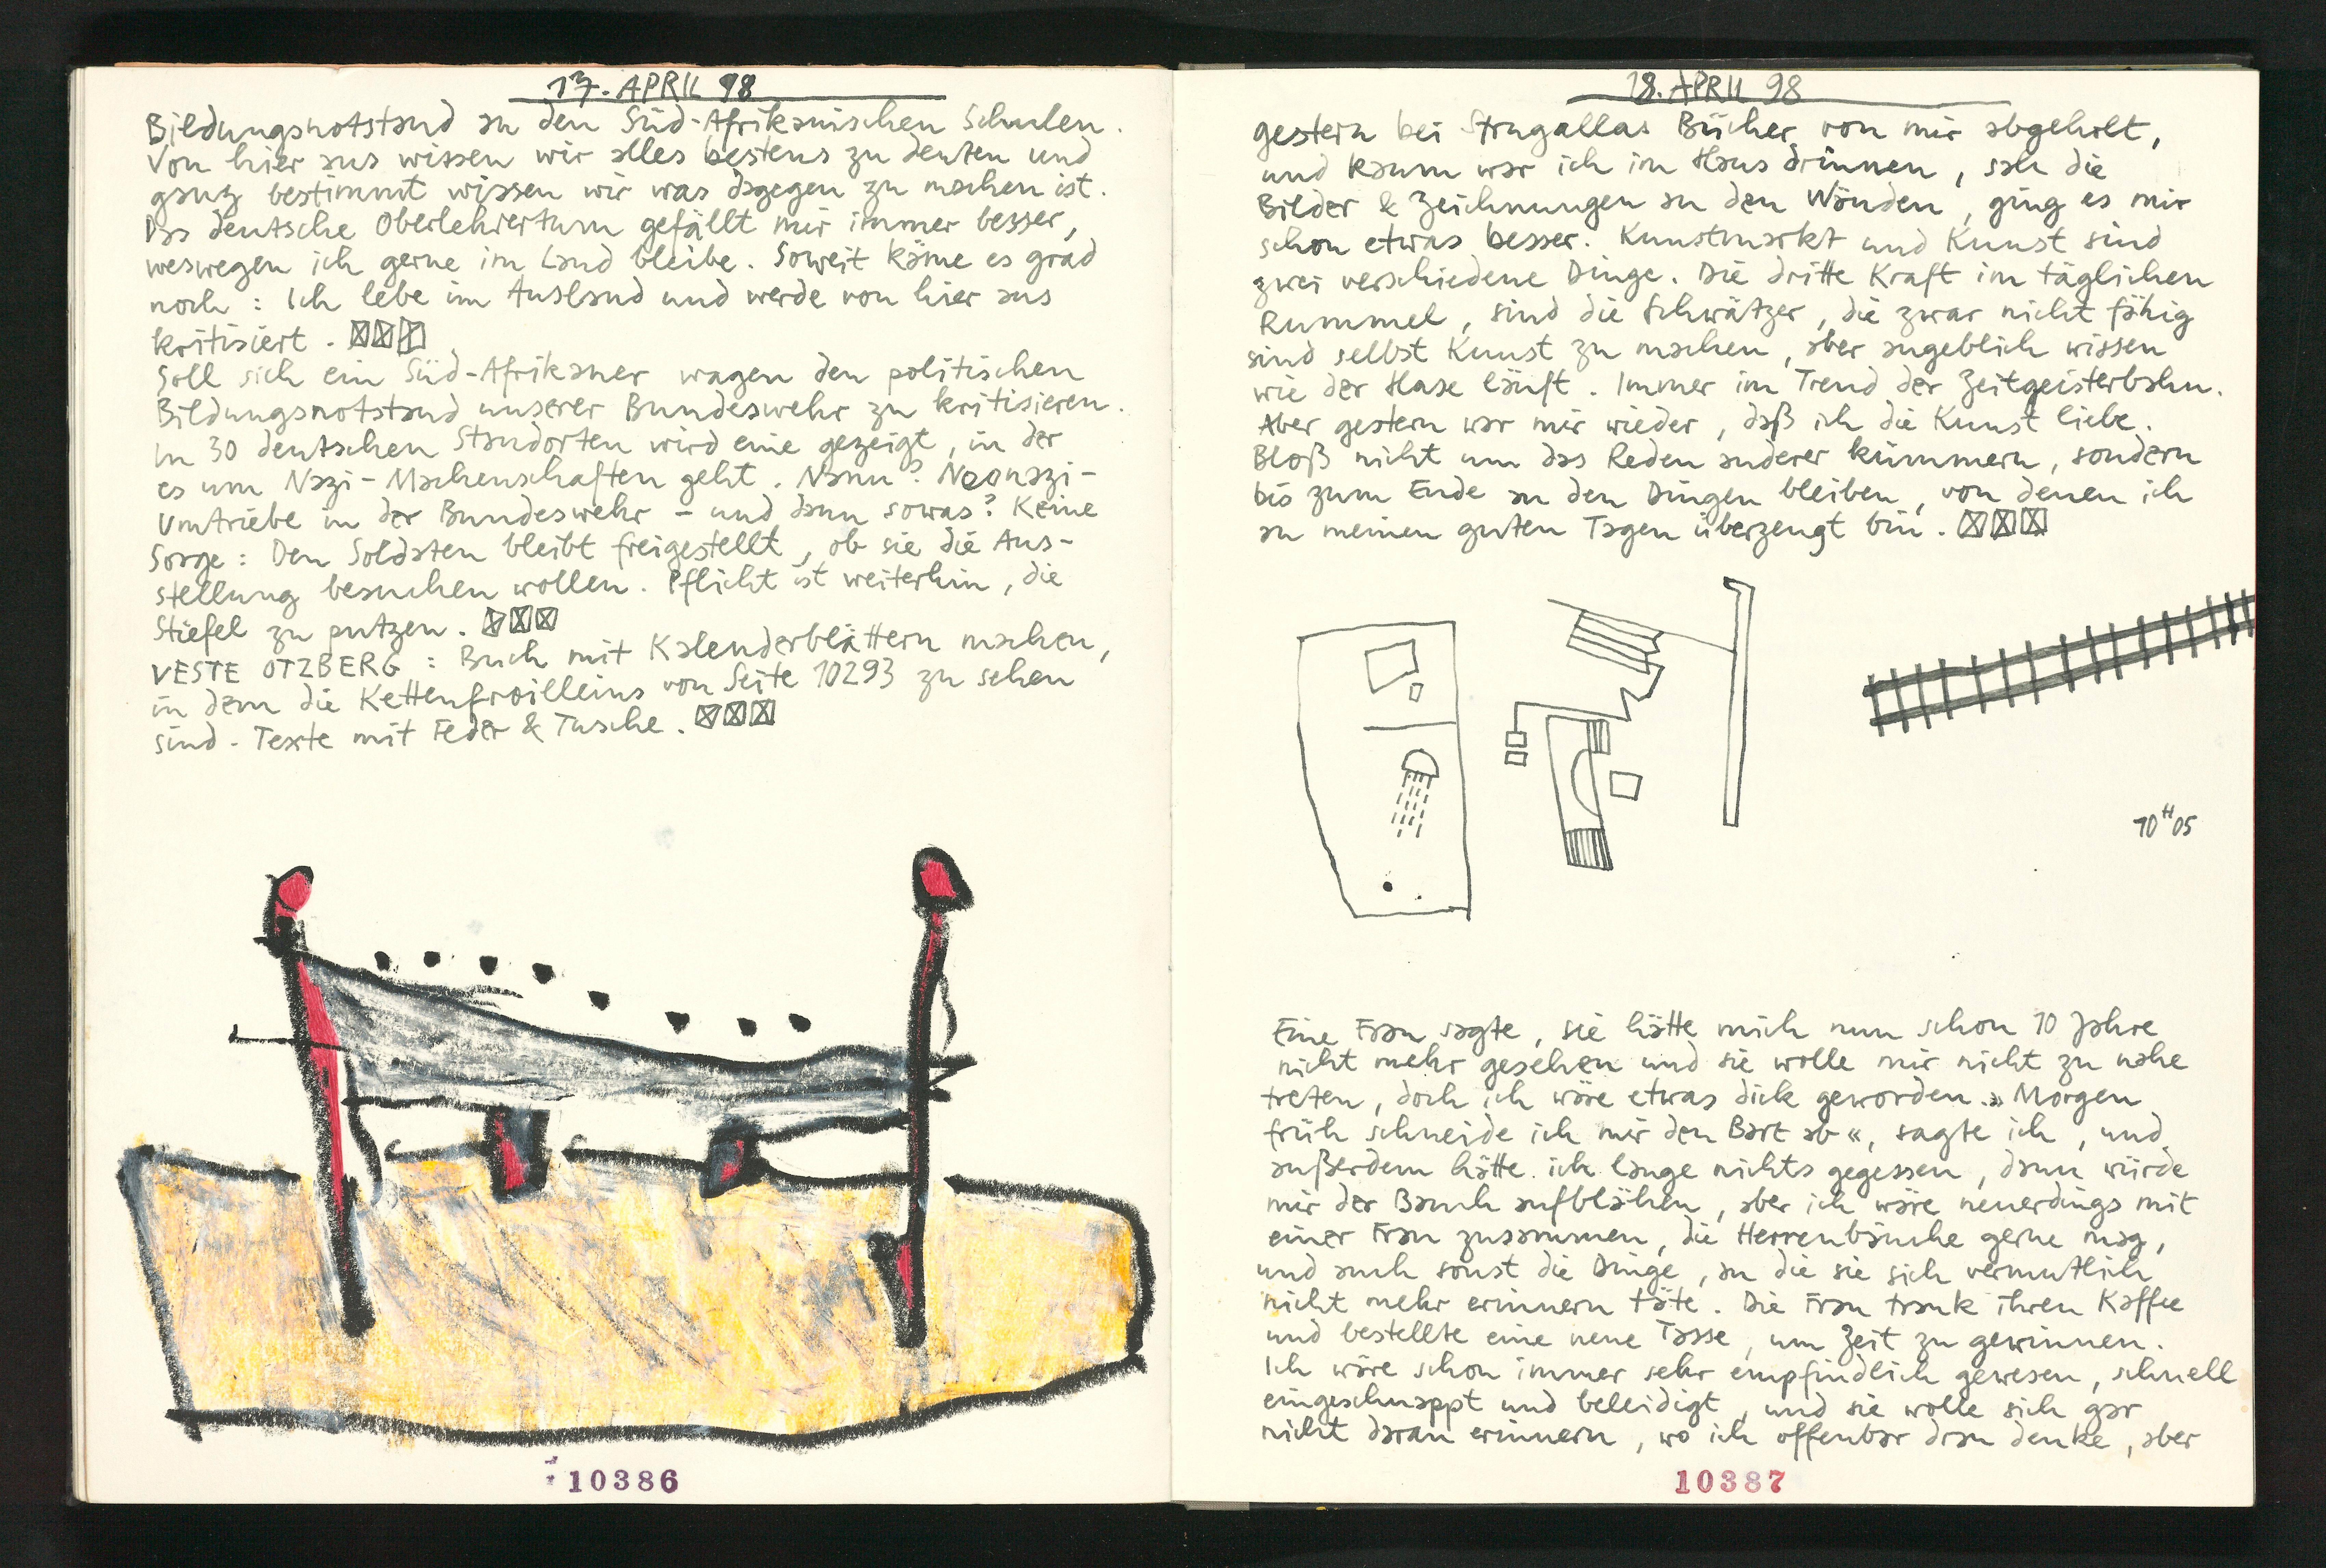 17. APRIL 98
Bildungsnotstand an den Süd-Afrikanischen Schulen.
Von hier aus wissen wir alles bestens zu deuten und
ganz bestimmt wissen wir was dagegen zu machen ist.
Das deutsche Oberlehrertum gefällt mir immer besser,
weswegen ich gerne im Land bleibe. Soweit käme es grad
noch : Ich lebe im Ausland und werde von hier aus
kritisiert.
Soll sich ein Süd-Afrikaner wagen den politischen
Bildungsnotstand unserer Bundeswehr zu kritisieren.
In 30 deutschen Standorten wird eine gezeigt, in der
es um Nazi-Machenschaften geht. Nanu? Neonazi-
Umtriebe in der Bundeswehr - und dann sowas? Keine
Sorge : Den Soldaten bleibt freigestellt, ob sie die Aus-
stellung besuchen wollen. Pflicht ist weiterhin, die
Stiefel zu putzen.
VESTE OTZBERG : Buch mit Kalenderblättern machen,
in dem die Kettenfroilleins von Seite 10293 zu sehen
sind. Texte mit Feder & Tusche.
10386
18. APRIL 98
gestern bei Strugallas Bücher von mir abgeholt,
und kaum war ich im Haus drinnen, sah die
Bilder & Zeichnungen an den Wänden, ging es mir
schon etwas besser. Kunstmarkt und Kunst sind
zwei verschiedene Dinge. Die dritte Kraft im täglichen
Rummel, sind die Schwätzer, die zwar nicht fähig
sind selbst Kunst zu machen, aber angeblich wissen
wie der Hase läuft. Immer im Trend der Zeitgeisterbahn.
Aber gestern war mir wieder, daß ich die Kunst liebe.
Bloß nicht um das Reden anderer kümmern, sondern
bis zum Ende an den Dingen bleiben, von denen ich
an meinen guten Tagen überzeugt bin.
10 H 05
Eine Frau sagte, sie hätte mich nun schon 10 Jahre
nicht mehr gesehen und sie wolle mir nicht zu nahe
treten, doch ich wäre etwas dick geworden. » Morgen
früh schneide ich mir den Bart ab «, sagte ich, und
außerdem hätte ich lange nichts gegessen, dann würde
mir der Bauch aufblähen, aber ich wäre neuerdings mit
einer Frau zusammen, die Herrenbäuche gerne mag,
und auch sonst die Dinge, an die sie sich vermutlich
nicht mehr erinnern täte. Die Frau trank ihren Kaffee
und bestellte eine neue Tasse, um Zeit zu gewinnen.
Ich wäre schon immer sehr empfindlich gewesen, schnell
eingeschnappt und beleidigt, und sie wolle sich gar
nicht daran erinnern, wo ich offenbar dran denke, aber
10387